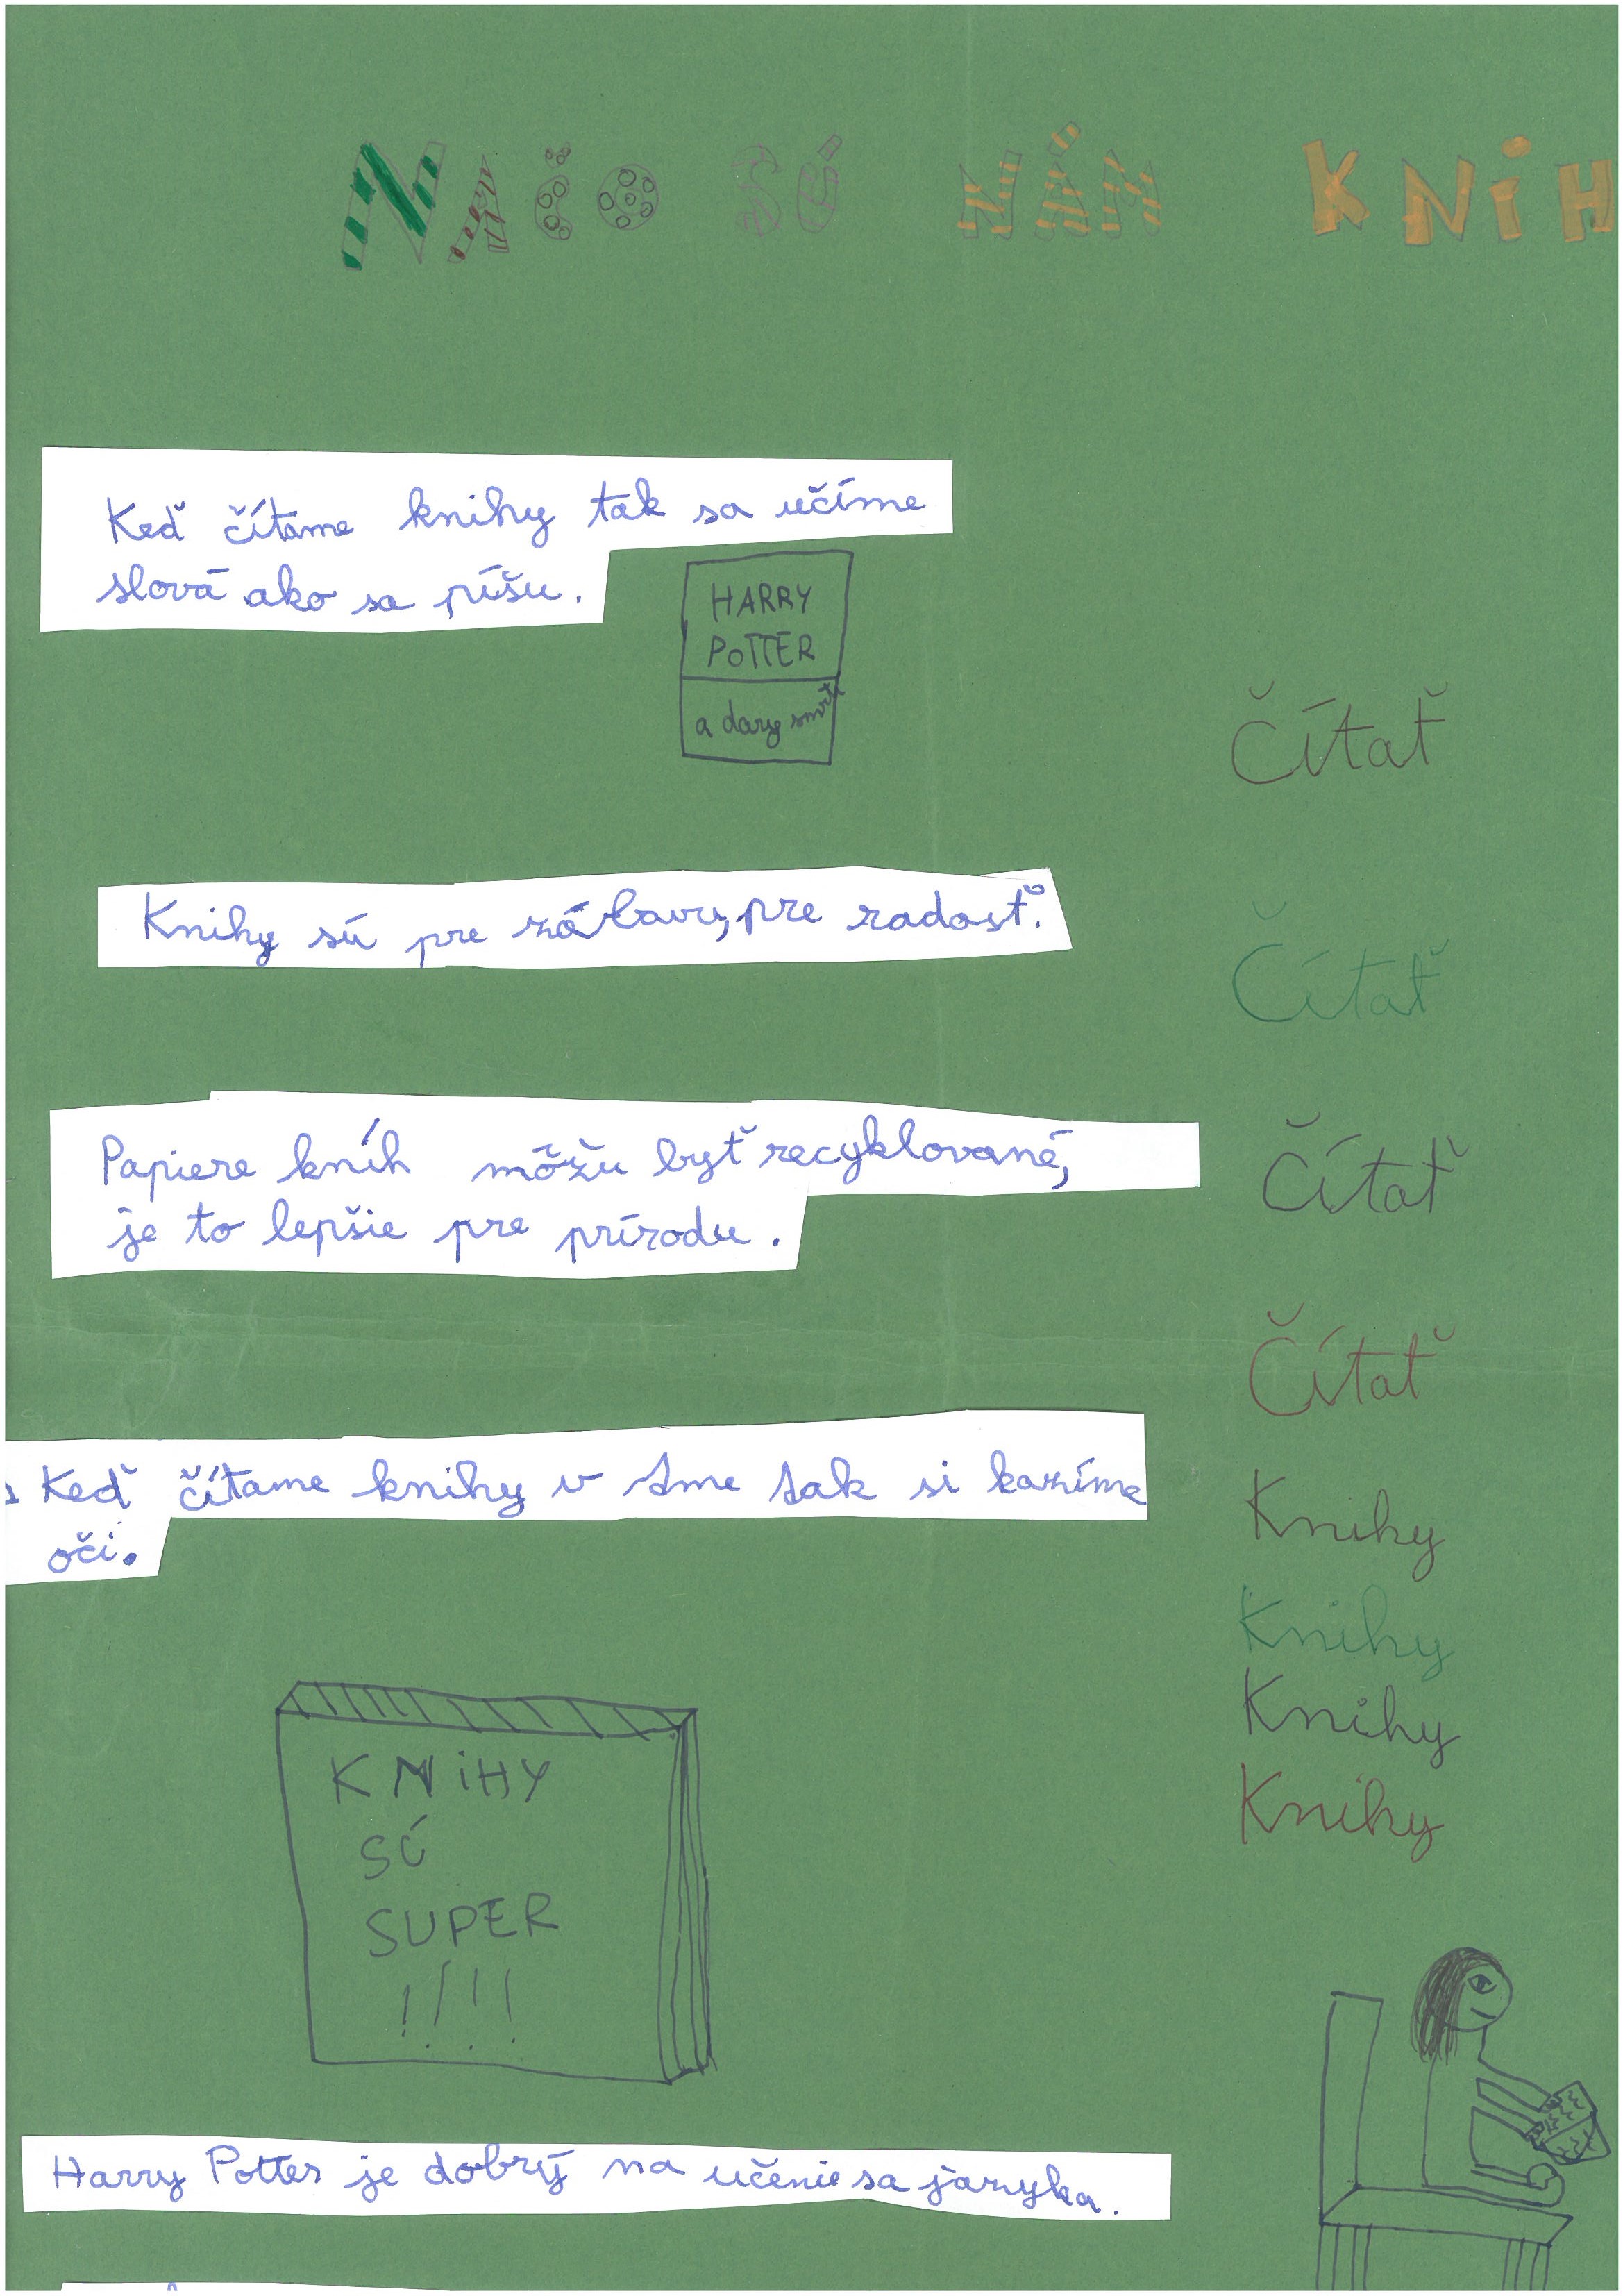 NAČO SÚ NÁM KNIH
Keď čítame knihy tak sa učíme
slová ako sa píšu.
HARRY
POTTER
a dary smrti
Čítať
Knihy sú pre zábavu, pre radosť.
Čítať
Papiere kníh môžu byť recyklované,
je to lepšie pre prírodu.
Čítať
Čítať
Keď čítame knihy v tme tak si kazíme
oči.
Knihy
Knihy
Knihy
Knihy
KNiHY
SÚ
SUPER
!!!!
Harry Potter je dobrý na učenie sa jazyka.